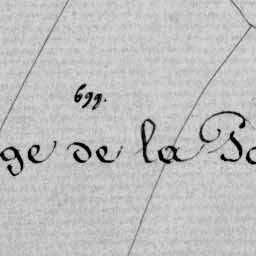 699.
ge de la Pa